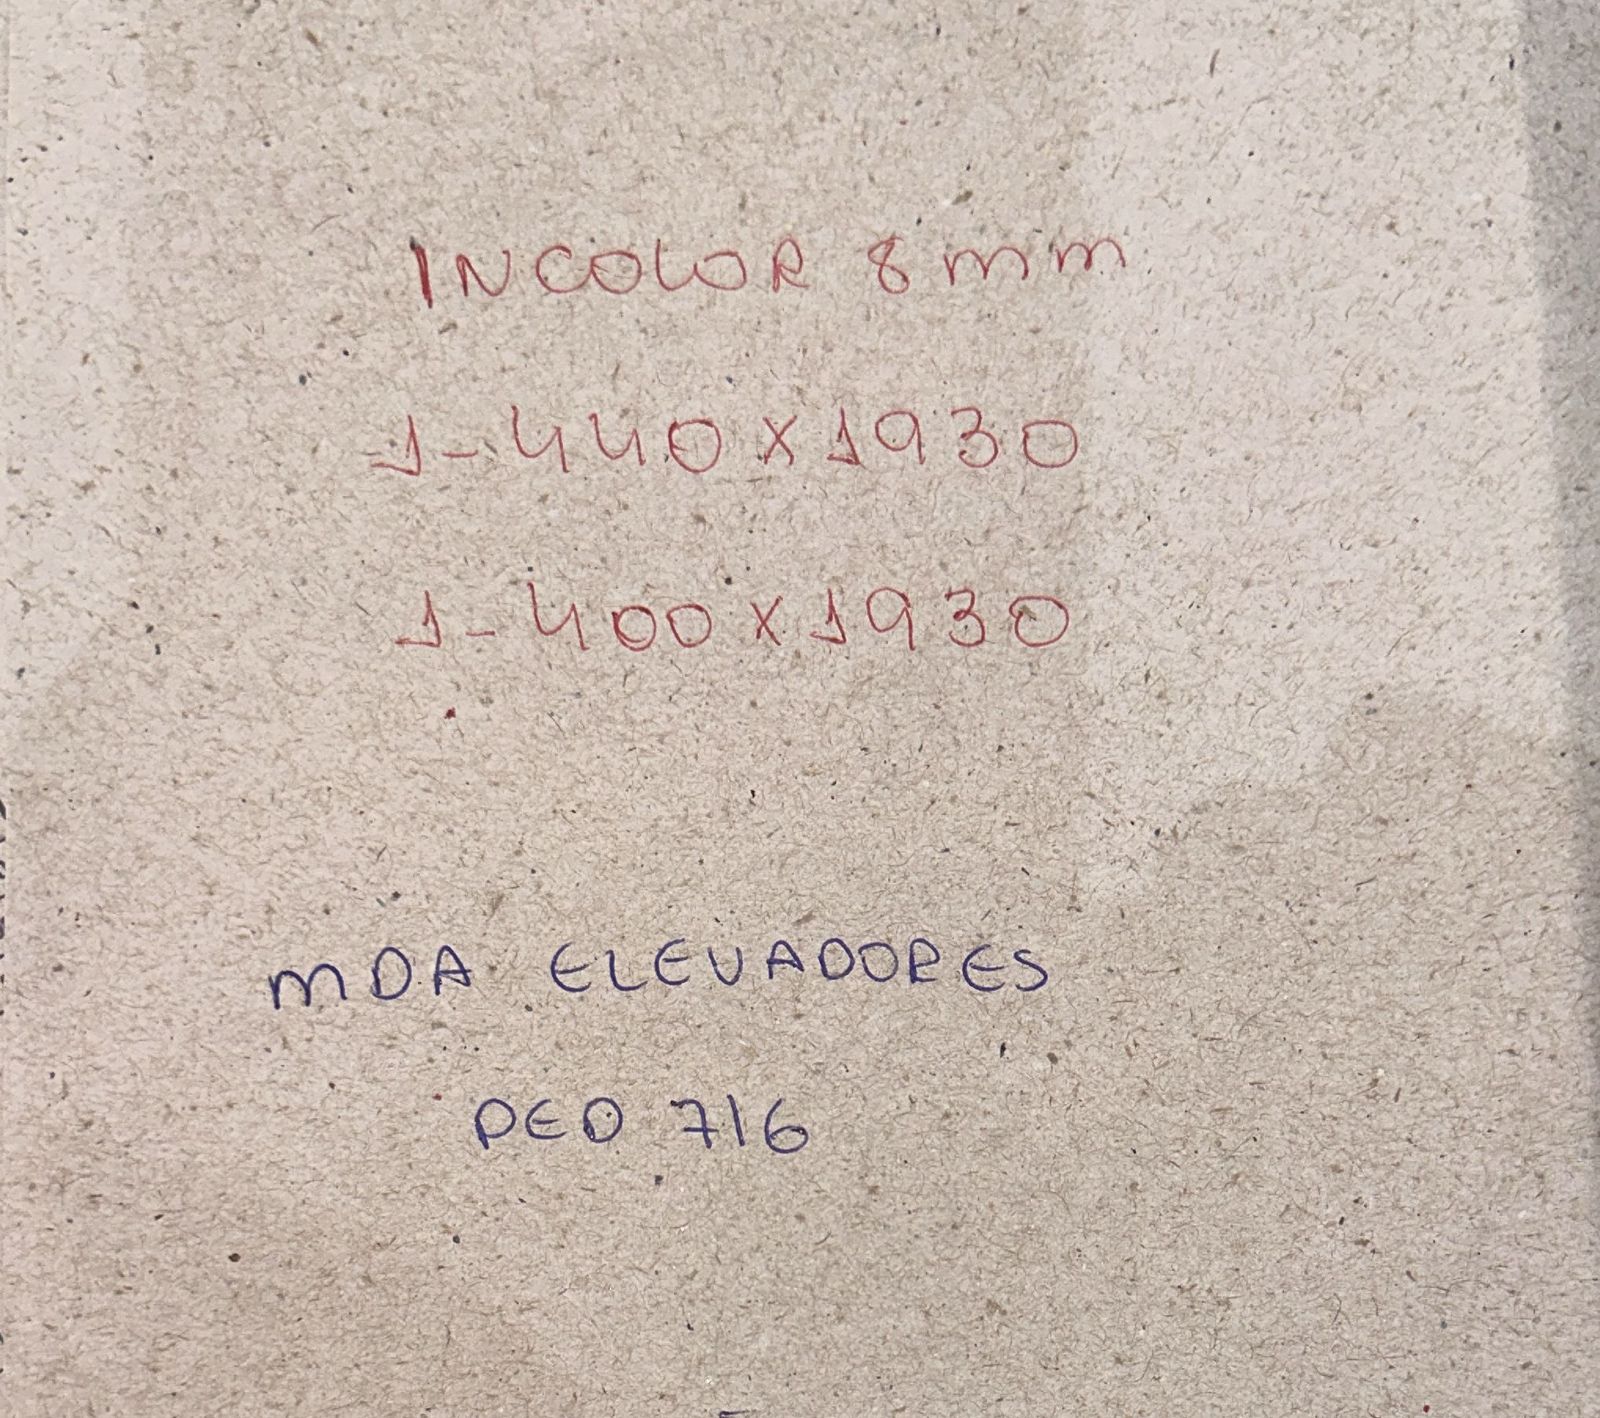 INCOLOR 8mm
1-440x1930
1-400x1930
MDA ELEVADORES
PED 716